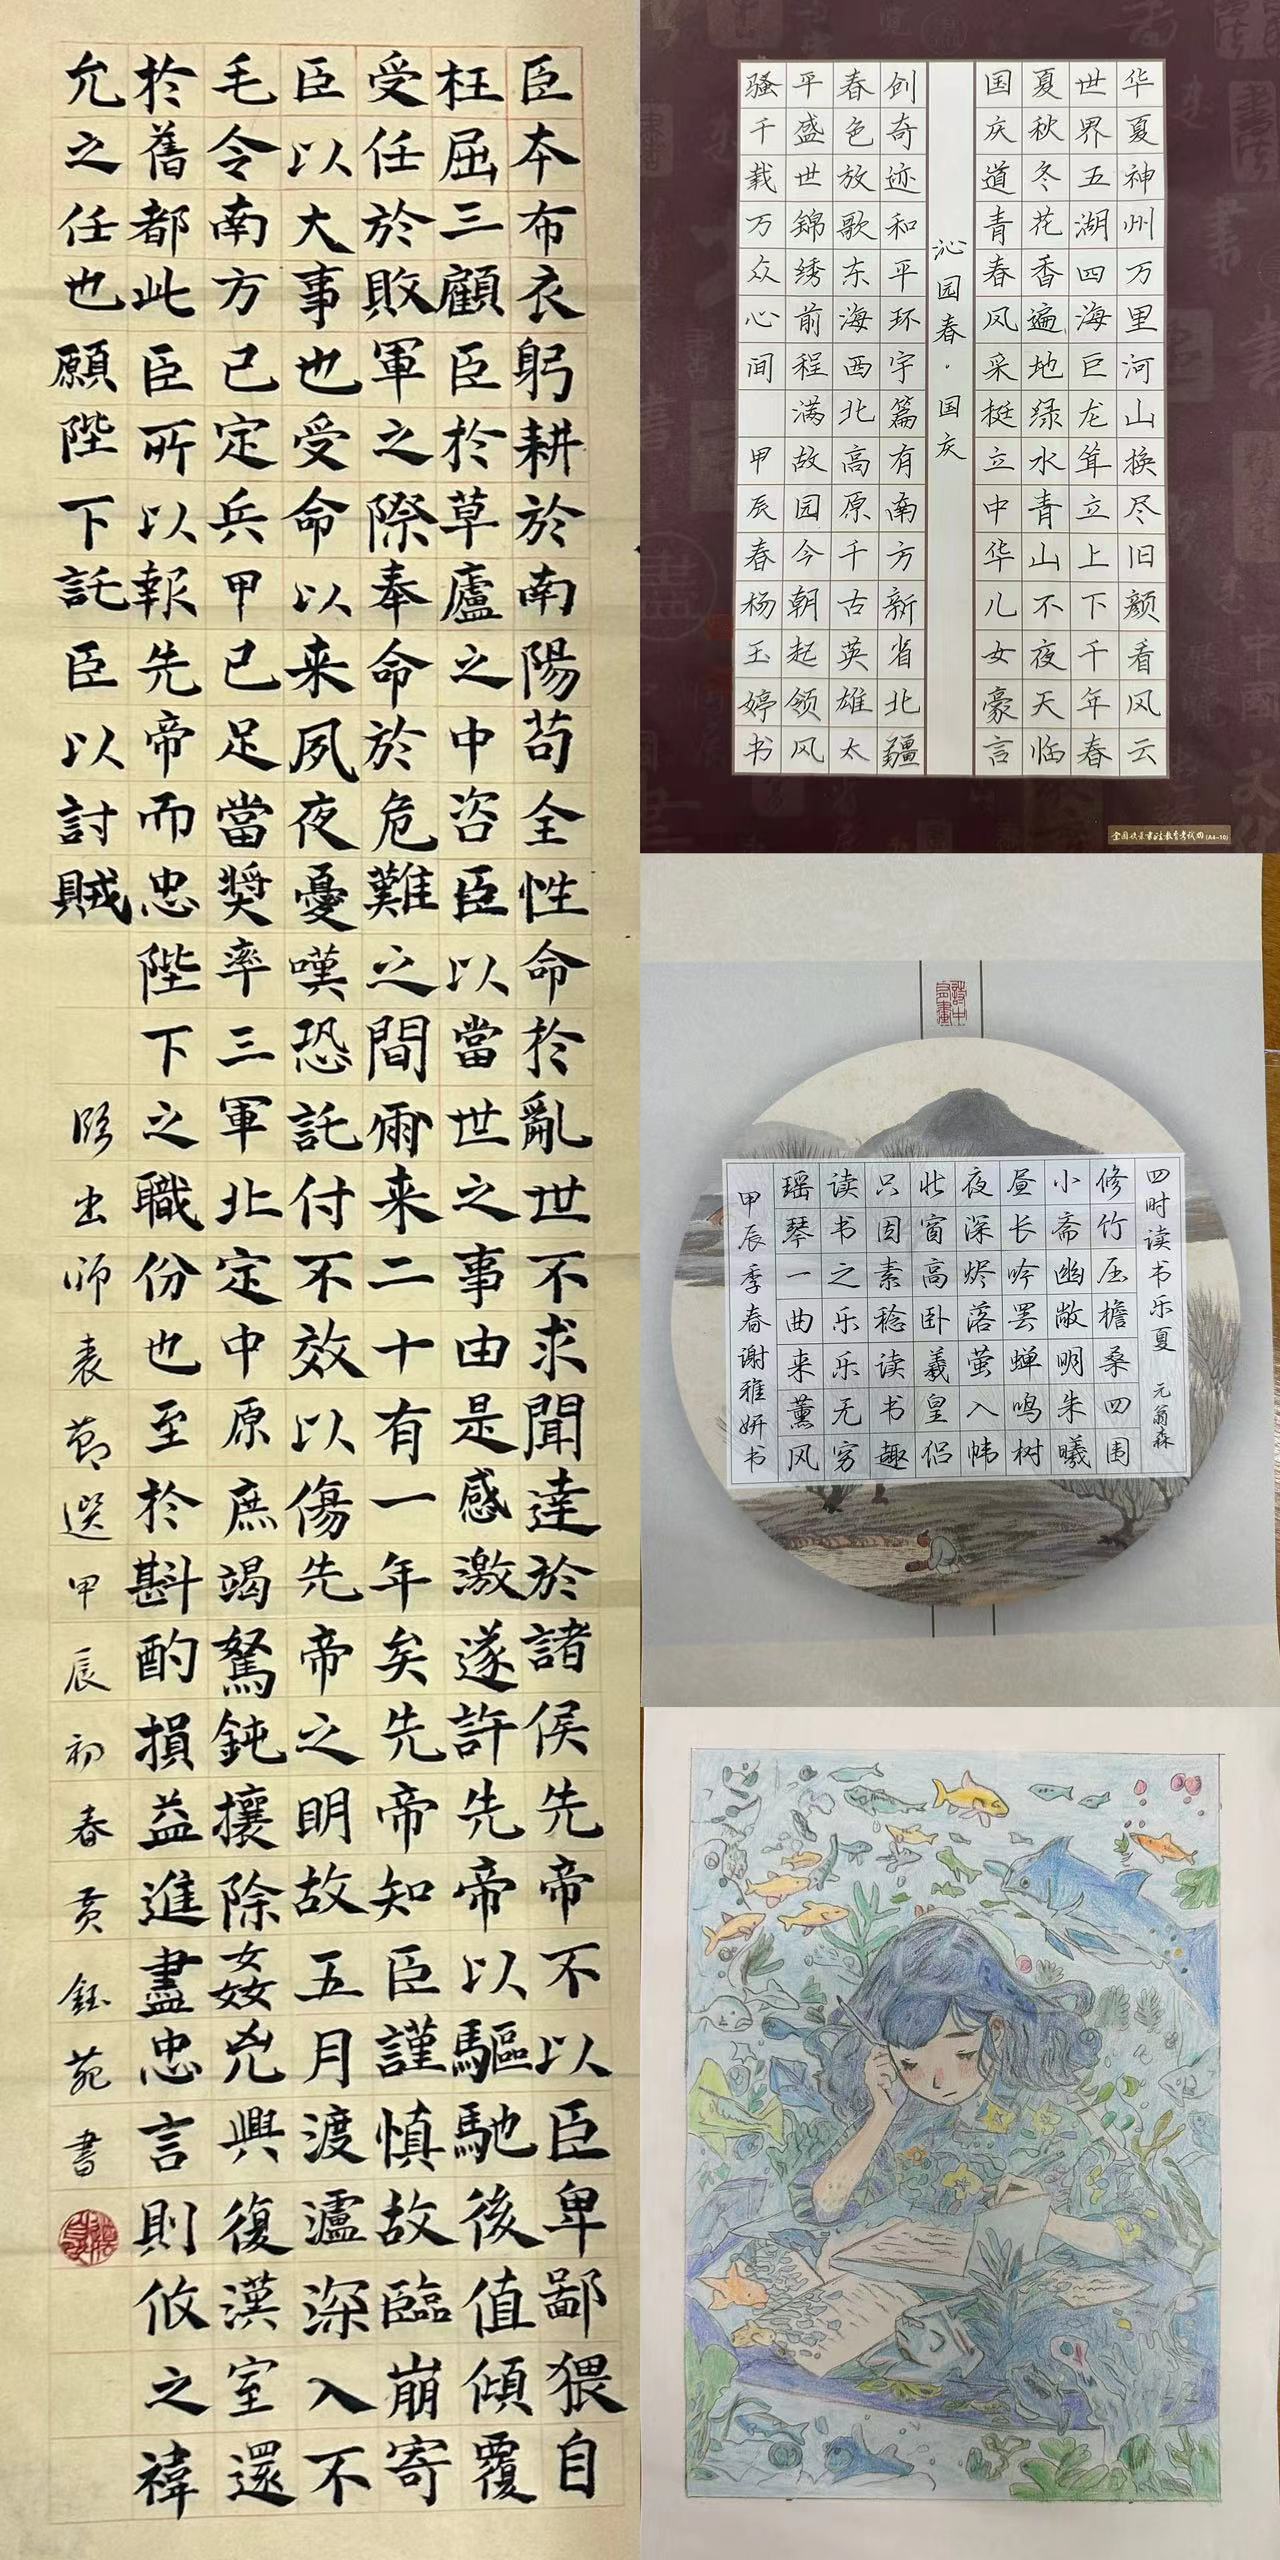 臣本布衣躬耕於南陽苟全性命於亂世不求聞達於諸侯先帝不以臣卑鄙猥自
枉屈三顧臣於草廬之中咨臣以當世之事由是感激遂許先帝以驅馳後值傾覆
受任於敗軍之際奉命於危難之間爾来二十有一年矣先帝知臣謹慎故臨崩寄
臣以大事也受命以来夙夜憂嘆恐託付不效以傷先帝之明故五月渡瀘深入不
毛令南方已定兵甲已足當奬率三軍北定中原庶竭駑鈍攘除姦兇興復漢室還
於舊都此臣所以報先帝而忠陛下之職份也至於斟酌損益進盡忠言則攸之禕
允之任也願陛下託臣以討賊
臨出師表節選甲辰初春黃鈺苑書
华夏神州万里河山换尽旧颜看风云
世界五湖四海巨龙耸立上下千年春
夏秋冬花香遍地绿水青山不夜天临
国庆道青春风采挺立中华儿女豪言
沁园春·国庆
创奇迹和平环宇篇有南方新省北疆
春色放歌东海西北高原千古英雄太
平盛世錦绣前程满故园今朝起领风
骚千载万众心间 甲辰春杨玉婷书
詩中有畫
四时读书乐夏 元翁森
修竹压檐桑四围
小斋幽敞明朱曦
昼长吟罢蝉鸣树
夜深烬落萤入帏
北窗高卧羲皇侣
只因素稔读书趣
读书之乐乐无穷
瑶琴一曲来薰风
甲辰季春谢雅妍书